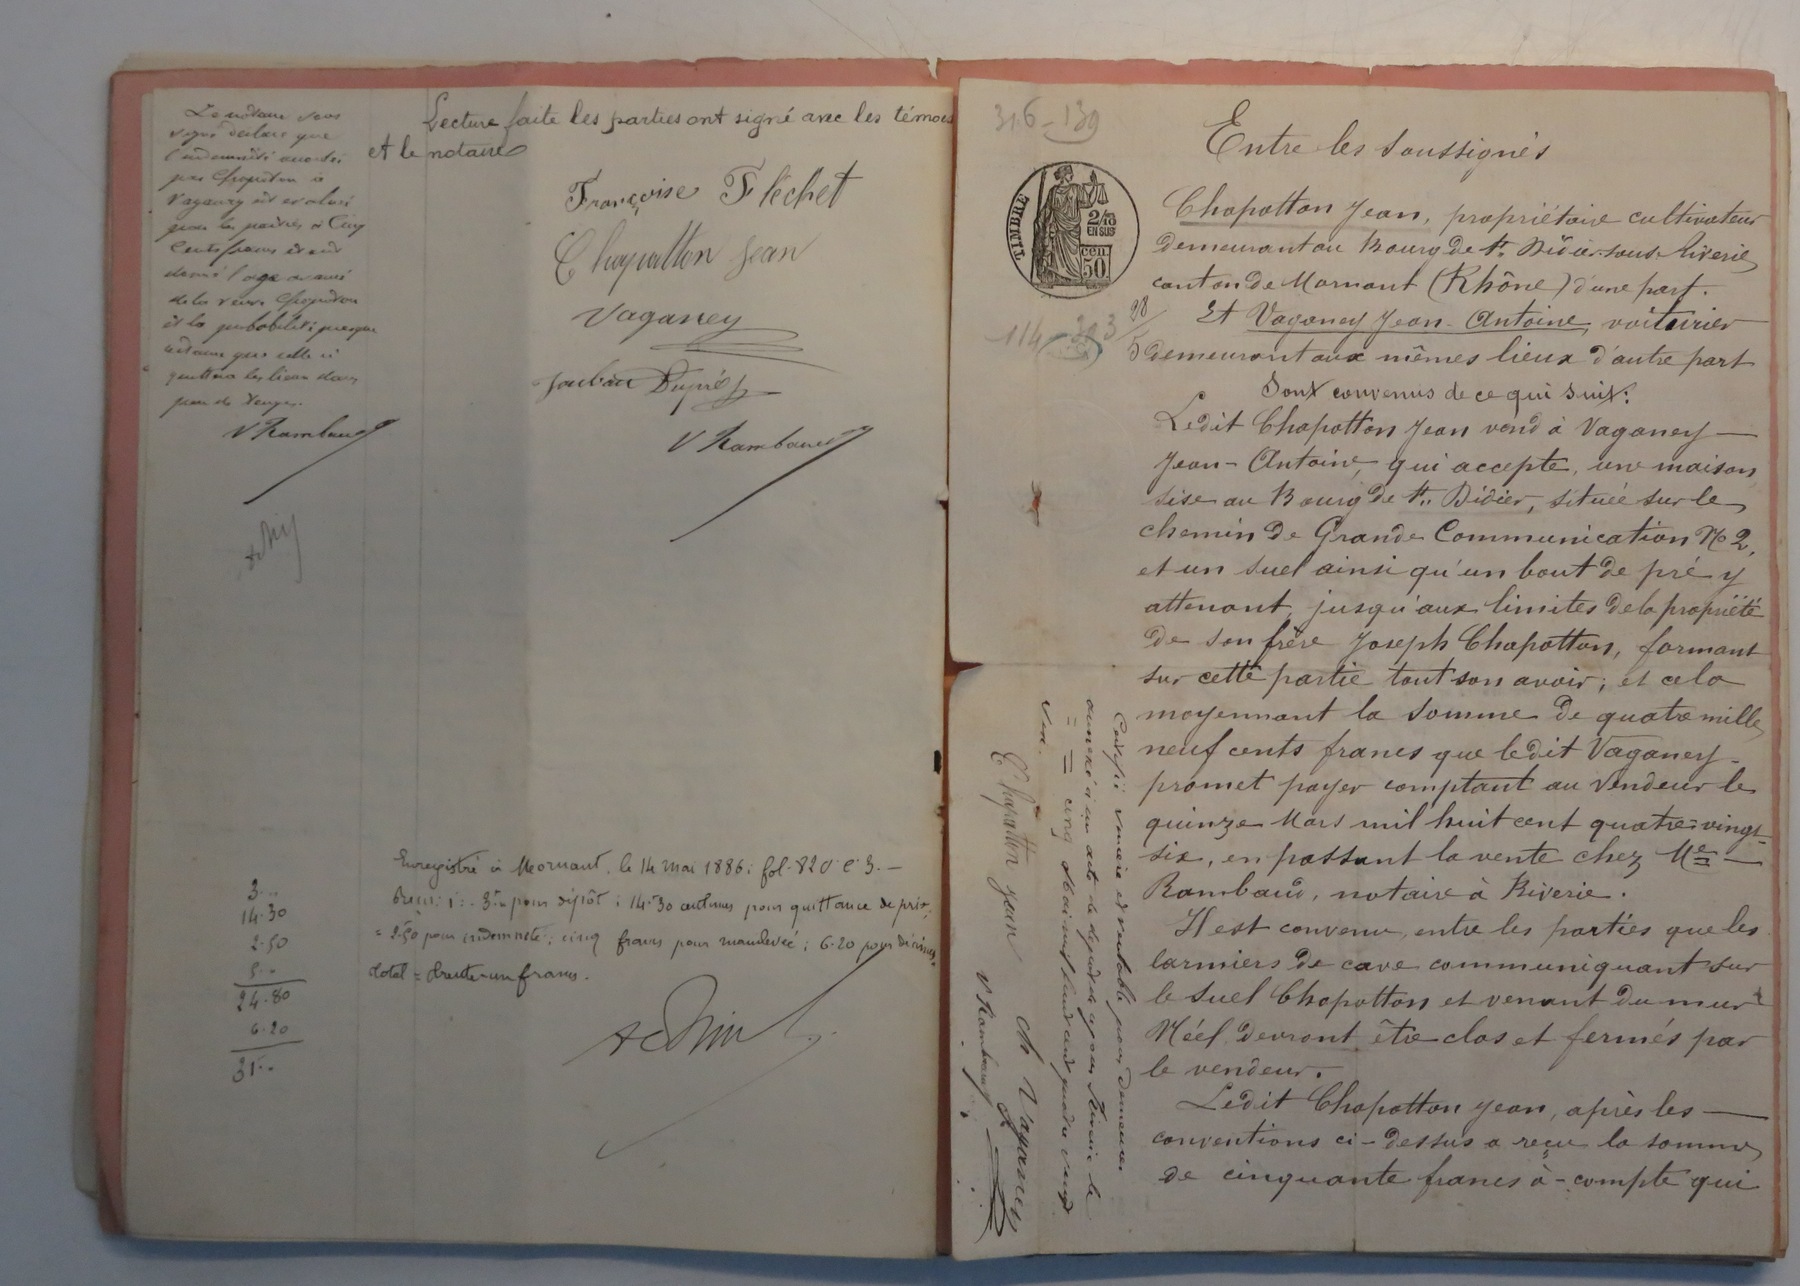 Le notaire sous
signé déclare que
l'indemnité
par Chapotton à
Vaganey est évaluée
par les parties à Cinq
Cents francs
l'age avancé
de la veuve Chapotton
et la probabilité presque
certaine que celle ci
quittera les lieux dans
peu de temps.
V Rambaud
Lecture faite les parties ont signé avec les témoins
et le notaire
Françoise Fléchet
Chapotton Jean
Vaganey
V Rambaud
Enregistré à Mornant, le 14 mai 1886, fol. 82
3 pour dépôt; 14.30 centimes pour quittance de prix,
= 2.50 pour indemnité; cinq francs pour mainlevée; 6.20 pour décimes.
total = trente-un francs.
3..
14.30
2.50
5..
24.80
6.20
31..
316-139
TIMBRE
2/10
EN SUS
50 cen.
28
5
Entre les soussignés
Chapotton Jean, propriétaire cultivateur
demeurant au Bourg de St. Didier-sous-Riverie
canton de Mornant (Rhône) d'une part.
Et Vaganey Jean-Antoine, voiturier
demeurant aux mêmes lieux d'autre part
Sont convenus de ce qui suit:
Ledit Chapotton Jean vend à Vaganey —
Jean-Antoine, qui accepte, une maison,
sise au Bourg de St. Didier, située sur le
chemin de Grande Communication No 2,
et un suel ainsi qu'un bout de pré y
attenant, jusqu'aux limites de la propriété
de son frère Joseph Chapotton, formant
sur cette partie tout son avoir; et cela
moyennant la somme de quatre mille
neuf cents francs que ledit Vaganey-
promet payer comptant au vendeur le
quinze Mars mil huit cent quatre-vingt-
six, en passant la vente chez Me —
Rambaud, notaire à Riverie.
Il est convenu, entre les parties que les
larmiers de cave communiquant sur
le suel Chapotton et venant du mur
Réel devront être clos et fermés par
le vendeur.
Ledit Chapotton Jean, après les —
conventions ci-dessus a reçu la somme
de cinquante francs à-compte qui
Certifié vraie et véritable pour demeurer
annexé à un acte de dépôt reçu par
Chapotton Jean
Vaganey
V Rambaud